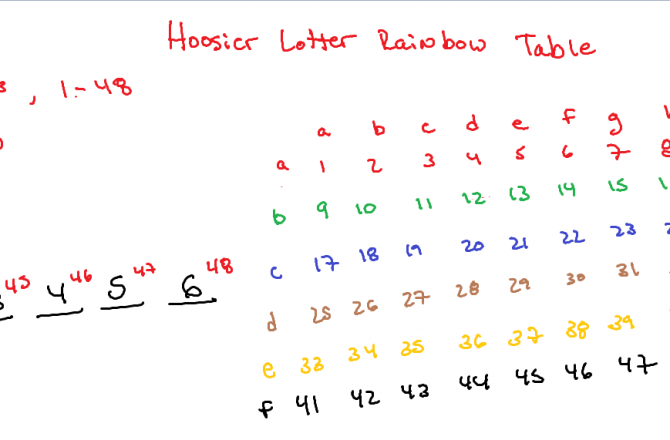 Hoosier Lotter Rainbow Table
, 1-48
a b c d e f g
a 1 2 3 4 5 6 7 8
b 9 10 11 12 13 14 15
c 17 18 19 20 21 22 23
45 4 46 5 47 6 48
d 25 26 27 28 29 30 31
e 33 34 35 36 37 38 39
f 41 42 43 44 45 46 47